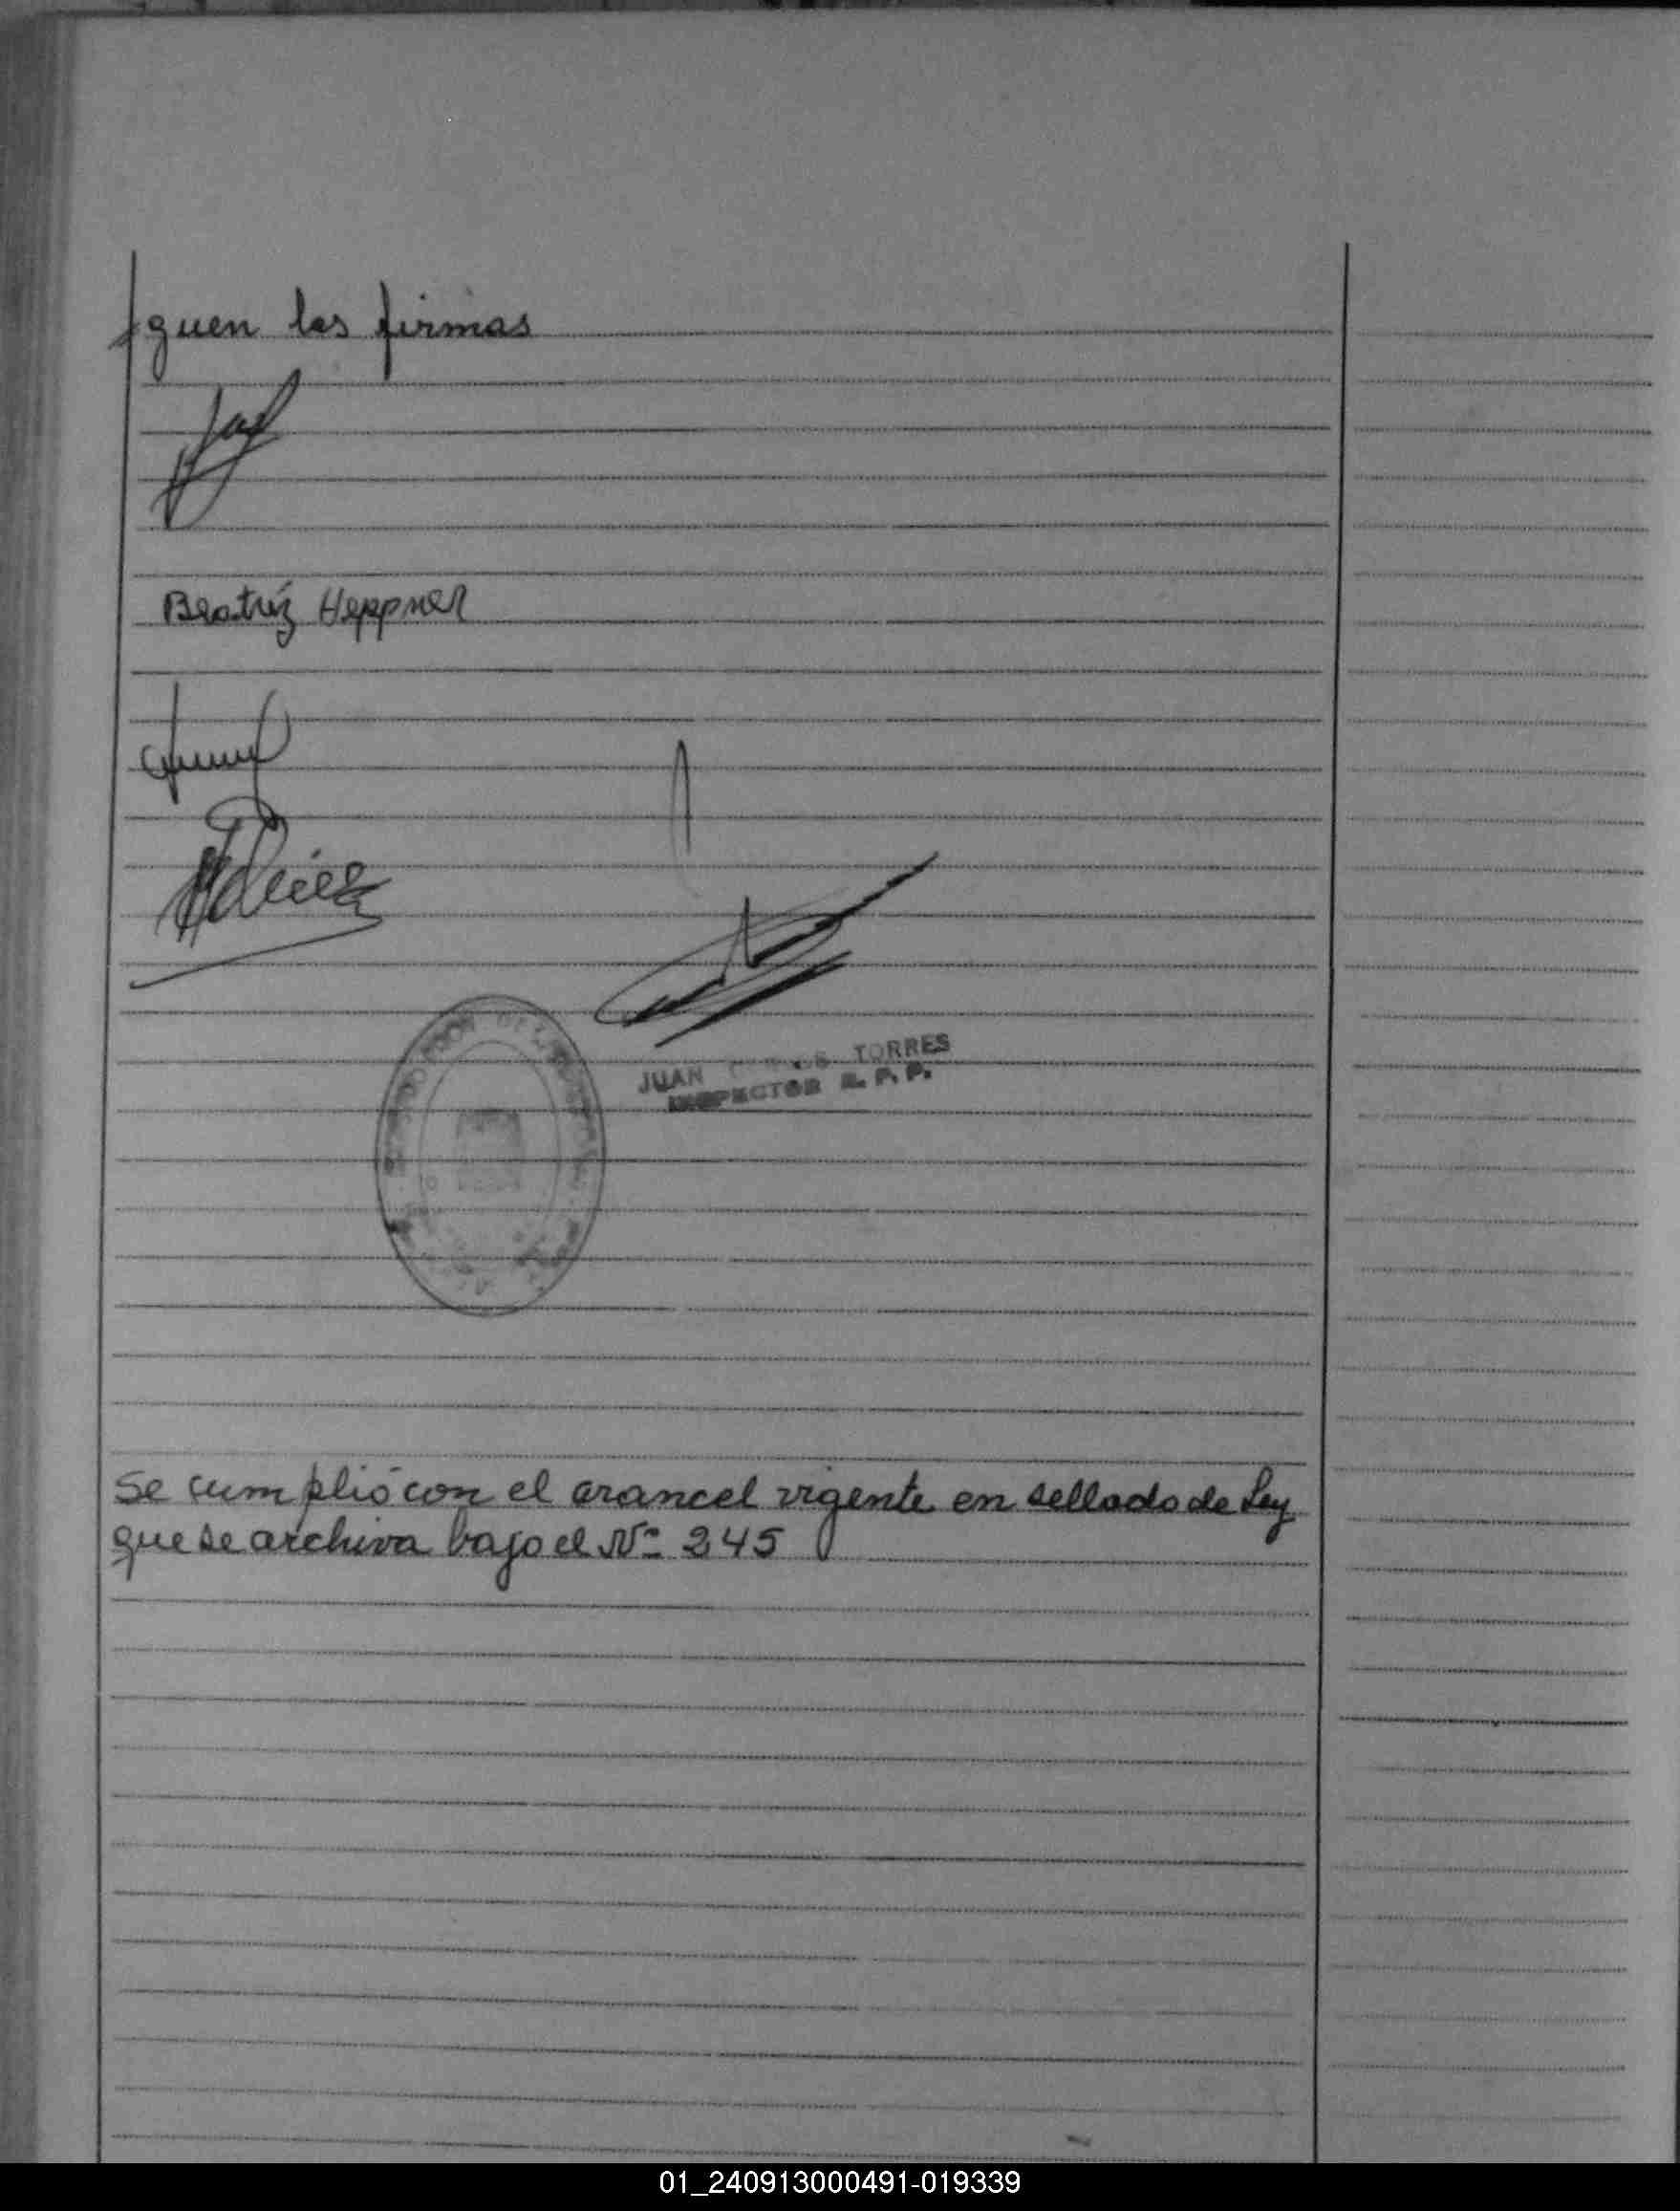 guen las firmas
Beatriz Heppner
JUAN TORRES
INSPECTOR R. P. P.
Se cumplió con el arancel vigente en sellado de Ley
que se archiva bajo el Nº 245
01_240913000491-019339